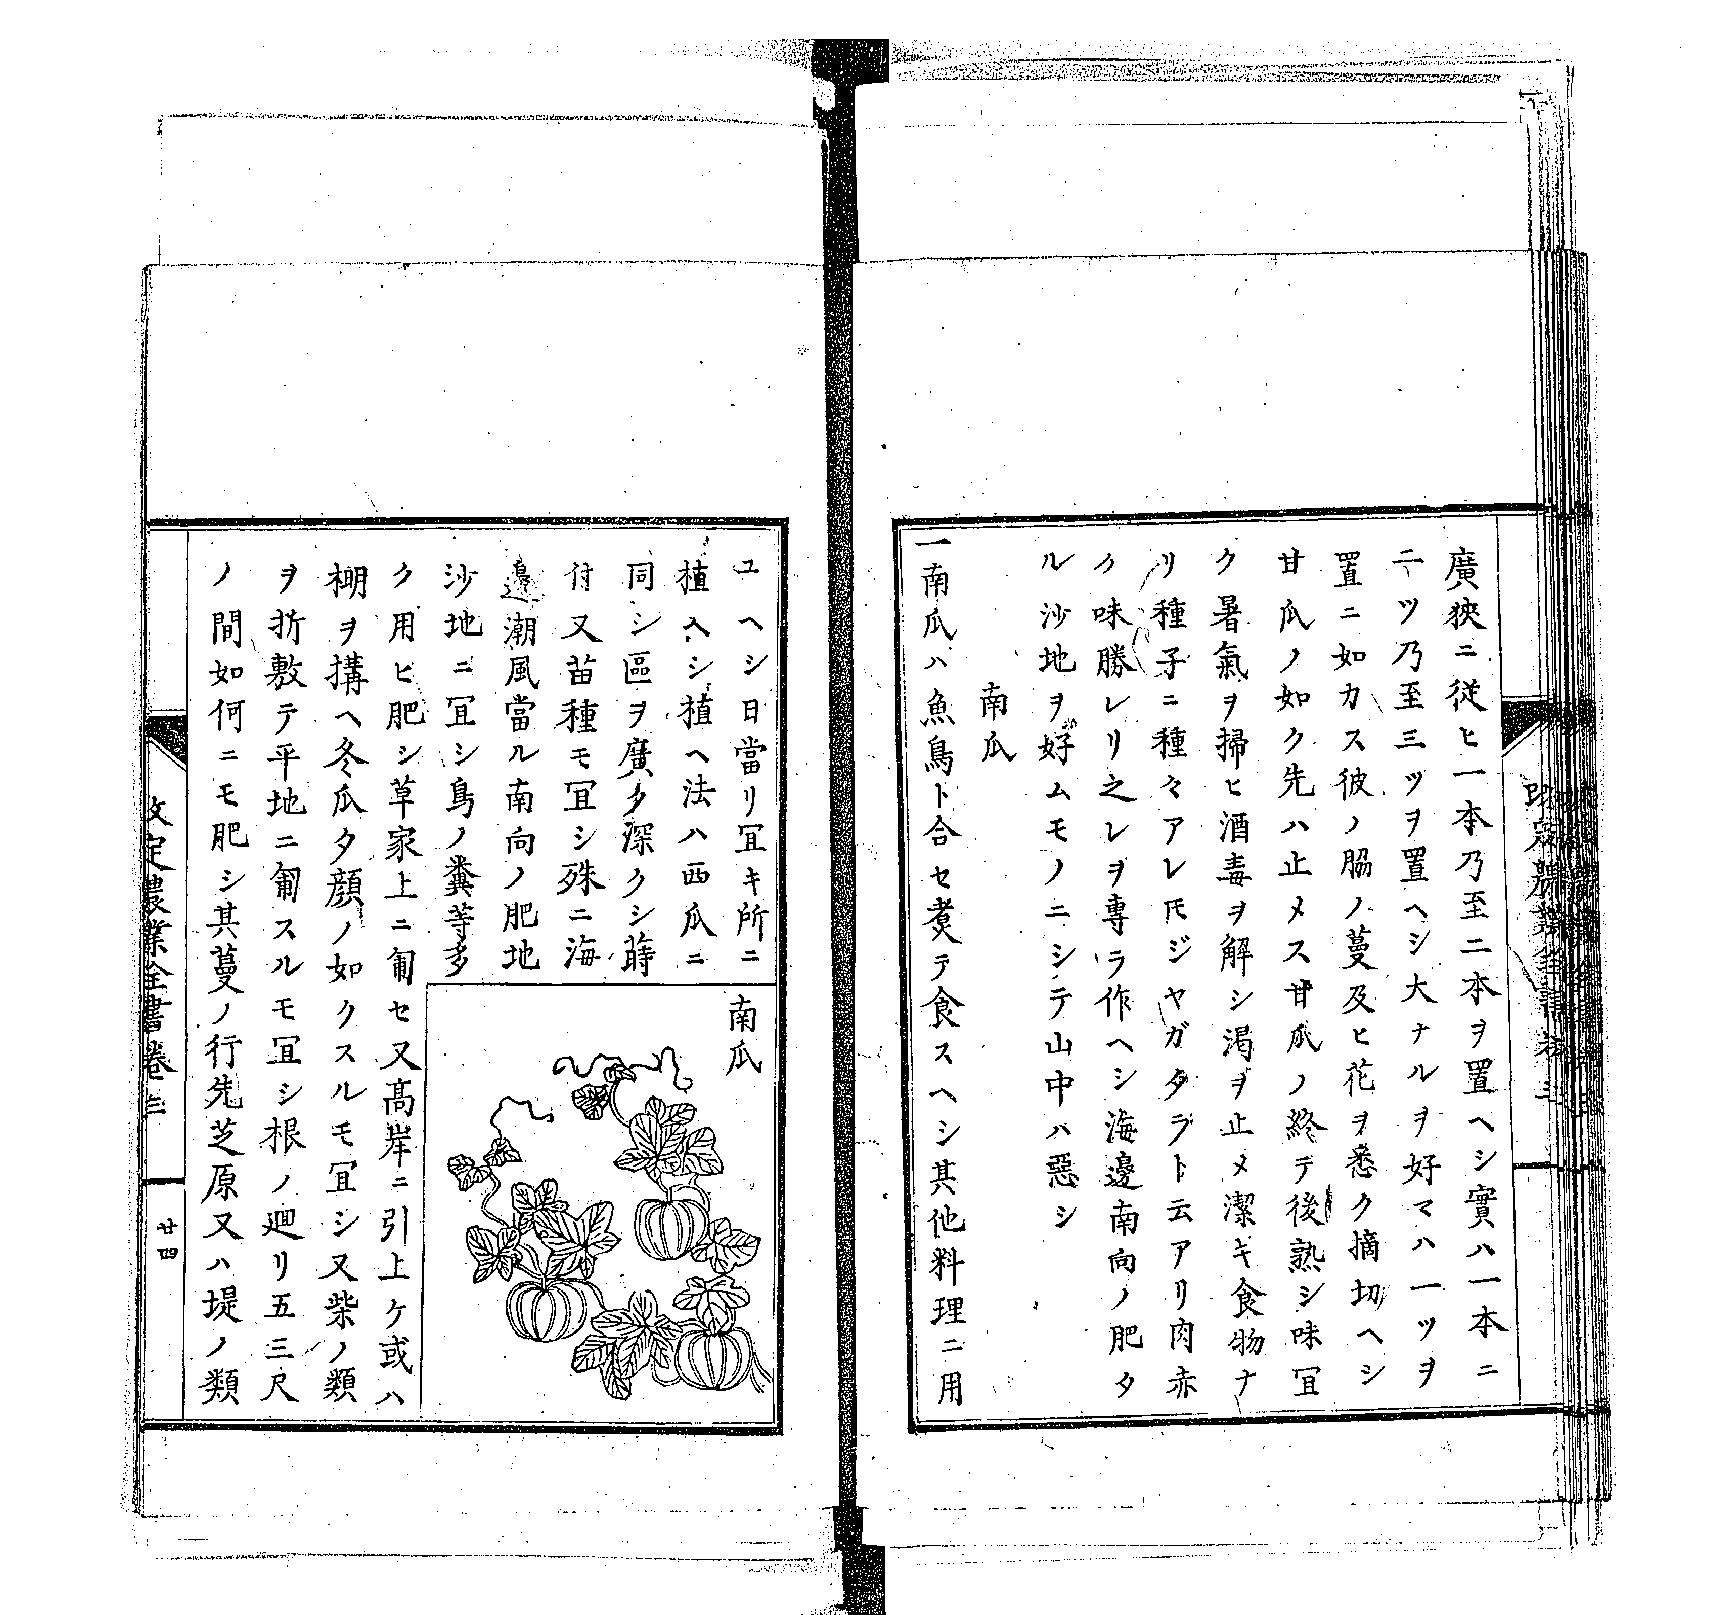 廣狹ニ従ヒ一本乃至二本ヲ置ヘシ實ハ一本ニ
二ツ乃至三ツヲ置ヘシ大ナルヲ好マハ一ツヲ
置ニ如カス彼ノ脇ノ蔓及ヒ花ヲ悉ク摘切ヘシ
甘瓜ノ如ク先ハ止メス甘瓜ノ終テ後熟シ味冝
ク暑氣ヲ掃ヒ酒毒ヲ解シ渇ヲ止メ潔キ食物ナ
リ種子ニ種々アレ𪜈ジヤガタラト云アリ肉赤
ク味勝レリ之レヲ專ラ作ヘシ海邊南向ノ肥タ
ル沙地ヲ好ムモノニシテ山中ハ惡シ
南瓜
一南瓜ハ魚鳥ト合セ煑テ食スヘシ其他料理ニ用
ユヘシ日當リ冝キ所ニ
植入シ植ヘ法ハ西瓜ニ
同シ區ヲ廣ク深クシ蒔
付又苗種モ冝シ殊ニ海
邊潮風當ル南向ノ肥地
沙地ニ冝シ鳥ノ糞等多
ク用ヒ肥シ草家上ニ匍セ又髙岸ニ引上ケ或ハ
棚ヲ搆ヘ冬瓜夕顔ノ如クスルモ冝シ又柴ノ類
ヲ折敷テ平地ニ匍スルモ冝シ根ノ廻リ五三尺
ノ間如何ニモ肥シ其蔓ノ行先芝原又ハ堤ノ類
南瓜
改定農業全書卷三
廿四